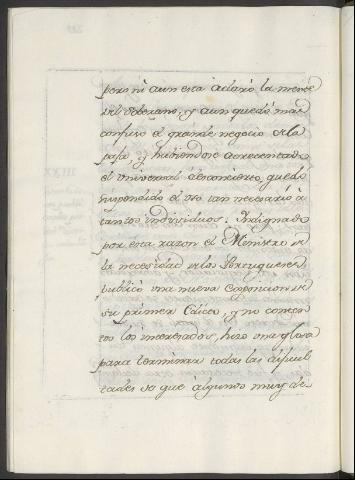 pero ni aun esta aclaró la mente
del Soberano, y aun quedó mas
confuso el grande negocio de la
paja, y habiendose acrecentado
el universal desconcierto, quedó
suspendido el uso tan necesario à
tantos individuos. Indignado
por esta razon el Ministro de
la necesidad de los Portugueses
publicó una nueva Exposicion de
su primer Edicto, y no conten
tos los interesados, hizo una glosa
para terminar todas las dificul
tades de que algunos muy de-